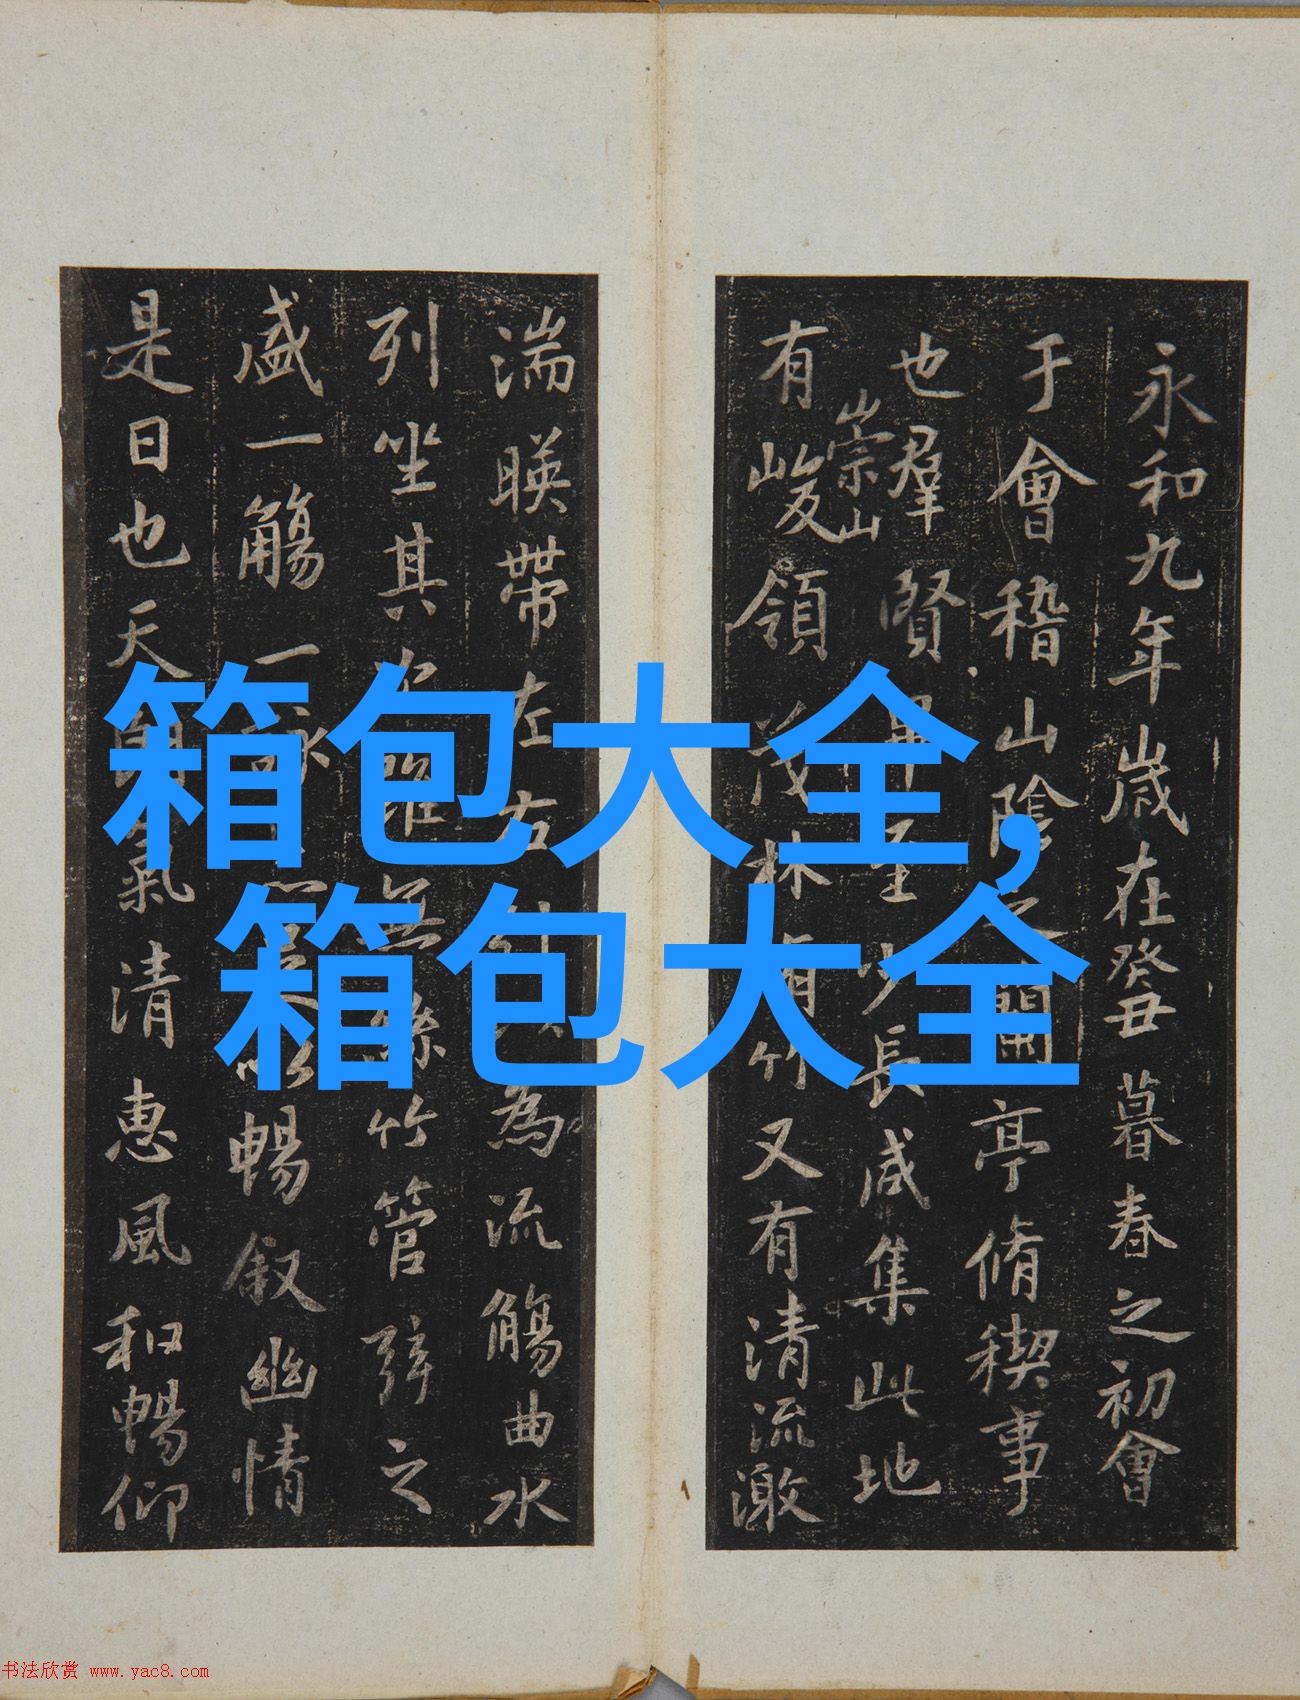 箱包大全,
箱包大全
永和九年歲在癸丑暮春之初會
于會稽山陰之蘭亭脩稧事
也羣賢畢至少長咸集此地
崇山
有峻領茂林脩竹又有清流激
湍暎帶左右為流觴曲水
列坐其次雖無絲竹管弦之
盛一觴一詠以暢叙幽情
是日也天朗氣清惠風和暢仰
书法欣赏 www.yac8.com